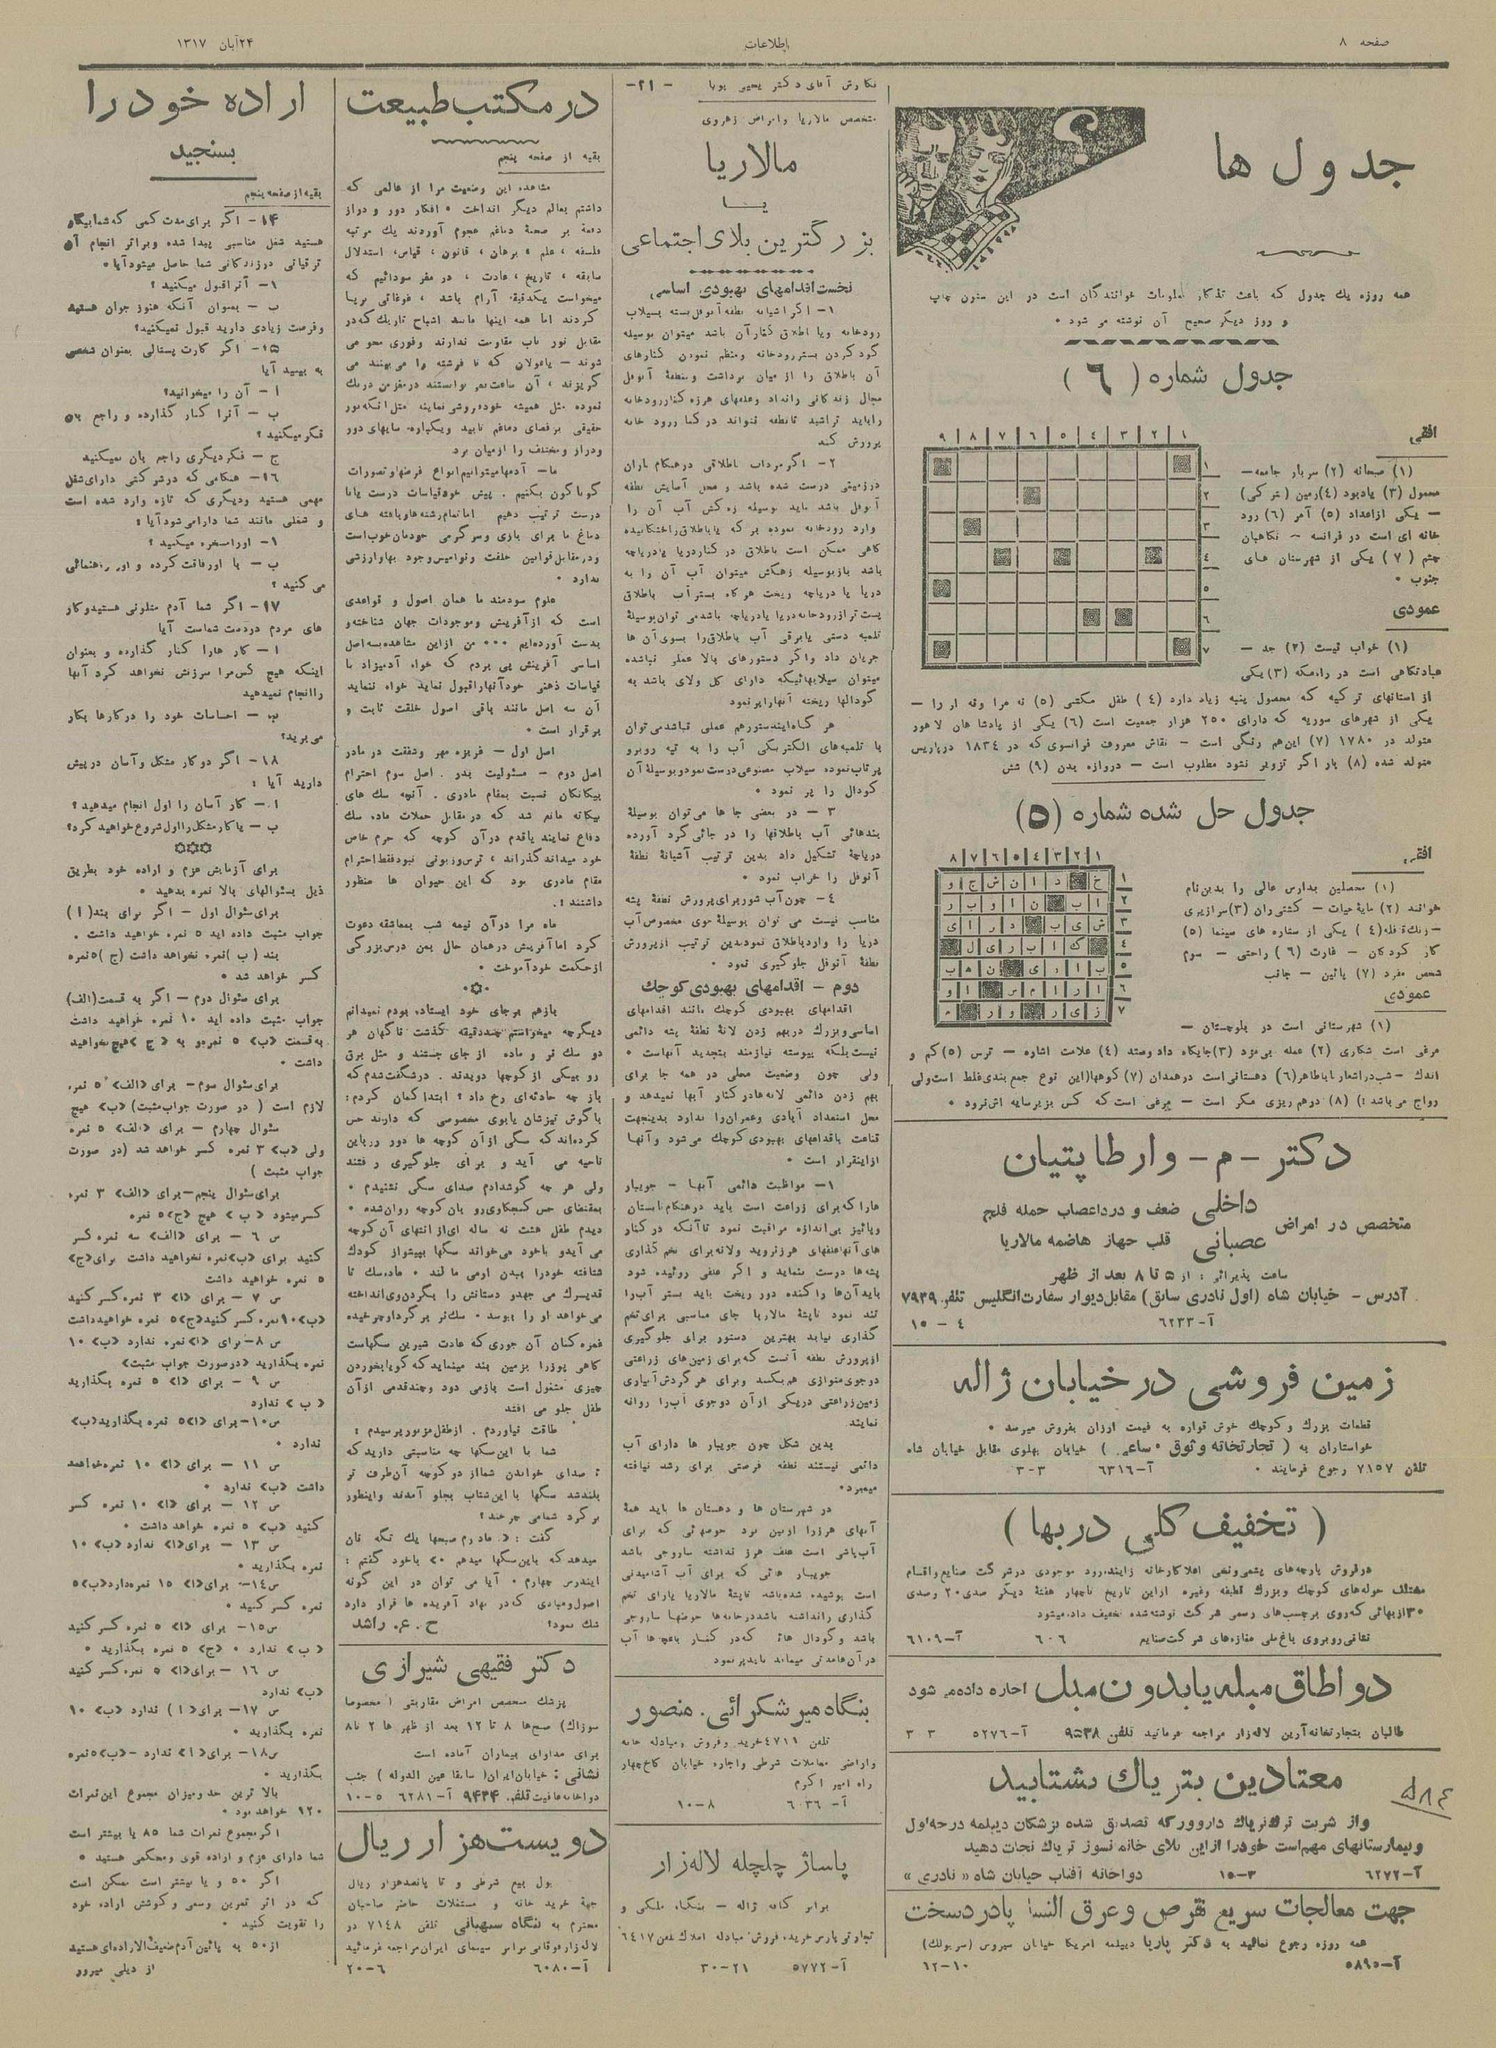 صفحه ۸
اطلاعات
۲۴ آبان ۱۳۱۷
جدول ها
همه روزه یك جدول که باعث تذکار معلومات خوانندگان است در این ستون چاپ
و روز دیگر صحیح آن نوشته می شود .
جدول شماره ( ۶ )
۱ ۲ ۳ ۴ ۵ ۶ ۷ ۸ ۹
۱
۲
۳
۴
۵
۶
۷
افقی
(۱) صبحانه (۲) سربار جامعه —
معمول (۳) یادبود (۴) زمین (ترکی)
— یکی از اعداد (۵) آمر (۶) رود
خانه ای است در فرانسه — نگاهبان
چشم ( ۷ ) یکی از شهرستان های
جنوب .
عمودی
(۱) خواب نیست (۲) جد —
عبادتگاهی است در راه مکه (۳) یکی
از استانهای ترکیه که محصول پنبه زیاد دارد (۴ ) طفل مکتبی (۵) نه مرا و نه او را —
یکی از شهرهای سوریه که دارای ۲۵۰ هزار جمعیت است (۶) یکی از پادشا هان لاهور
متولد در ۱۷۸۰ (۷) این هم رنگی است — نقاش معروف فرانسوی که در ۱۸۳۴ در پاریس
متولد شده (۸) یار اگر تزویر نشود مطلوب است — دروازه بدن (۹) شش
جدول حل شده شماره (۵)
۱ ۲ ۳ ۴ ۵ ۶ ۷ ۸
افقی
(۱) محصلین مدارس عالی را بدین نام
خوانند (۲) مایۀ حیات — کشتی ران (۳) سرازیری
— زنگ قافله (۴ ) یکی از ستاره های سینما (۵)
کار کودکان — غارت (۶) راحتی — سوم
شخص مفرد (۷) پائین — جانب
عمودی
(۱) شهرستانی است در بلوچستان —
مرغی است شکاری (۲) عمله بی مزد (۳) جایگاه داد و ستد (۴) علامت اشاره — ترس (۵) کم و
اندك — شب در اشعار باباطاهر (۶) دهستانی است در همدان (۷) کوهها (این نوع جمع بندی غلط است ولی
رواج می باشد :) (۸) درهم ریزی مکر است — مرغی است که کس بزیر سایه اش نرود .
دکتر - م - وارطاپتیان
متخصص در امراض داخلی عصبانی
ضعف و درد اعصاب حمله فلج
قلب جهاز هاضمه مالاریا
ساعت پذیرائی : از ۵ تا ۸ بعد از ظهر
آدرس - خیابان شاه (اول نادری سابق) مقابل دیوار سفارت انگلیس تلفن ۷۹۳۹
آ-۶۲۳۳ ۴ - ۱۵
زمین فروشی در خیابان ژاله
قطعات بزرك و کوچك خوش قواره به قیمت ارزان بفروش میرسد .
خواستاران به ( تجارتخانه وثوق . ساعی ) خیابان پهلوی مقابل خیابان شاه
تلفن ۷۱۵۷ رجوع فرمایند . آ-۶۳۱۶ ۳-۳
( تخفیف کلی در بها )
مختلف حوله های کوچك و بزرك قطیفه وغیره از این تاریخ تا چهار هفتۀ دیگر صدی ۲۰ و صدی
۳۰ از بهائی که روی برچسب های رسمی شرکت نوشته شده تخفیف داده میشود
نشانی روبروی باغ ملی مغازه های شرکت صنایع ۶-۶ آ-۶۱۰۹
دو اطاق مبله یا بدون مبل اجاره داده می شود
طالبان بتجارتخانه آرین لاله زار مراجعه فرمایند تلفن ۹۵۳۸ آ-۵۲۷۶ ۳-۳
معتادین بتریاك بشتابید
۵۸۴
و از شربت ترك تریاك داروور که تصدیق شده پزشکان دیپلمه درجه اول
و بیمارستانهای مهم است خود را از این بلای خانمانسوز تریاك نجات دهید
آ-۶۲۷۲ ۳-۱۵ دواخانه آفتاب خیابان شاه « نادری »
جهت معالجات سریع نقرص و عرق النسا پادردسخت
همه روزه رجوع نمائید به دکتر پاریا دیپلمه امریکا خیابان سیروس (سرپولك)
آ-۵۸۹۵ ۱۰-۱۲
نگارش آقای دکتر یحیی پویا
-۲۱-
متخصص مالاریا و امراض زهروی
مالاریا
یا
بزرگترین بلای اجتماعی
نخست اقدامهای بهبودی اساسی
۱- اگر آشیانه نطفه آنوفل بسته بسیلاب
رودخانه و یا اطلاق کنار آن باشد میتوان بوسیله
گود کردن بستر رودخانه و منظم نمودن کنارهای
آن باطلاق را از میان برداشت و نطفۀ آنوفل
مجال زندگانی را نداد و علفهای هرزه کنار رودخانه
را باید تراشید تا نطفه نتواند در کنار رود خانه
پرورش کند
۲- اگر مرداب باطلاقی در هنگام باران
در زمینی درست شده باشد و محل آسایش نطفه
آنوفل باشد باید بوسیله زه کش آب آن را
وارد رودخانه نموده بر که یا باطلاق را خشکانیده
گاهی ممکن است باطلاق در کنار دریا یا دریاچه
باشد باز بوسیله زهکش میتوان آب آن را به
دریا یا دریاچه ریخت هرگاه بستر آب باطلاق
پست تر از رودخانه دریا یا دریاچه باشد می توان بوسیلۀ
تلمبه دستی یا برقی آب باطلاق را بسوی آن ها
جریان داد و اگر دستورهای بالا عملی نباشد
میتوان سیلابهائیکه دارای گل ولای باشد به
گودالها ریخته آنها را پر نمود
هر گاه ایندستور هم عملی نباشد می توان
با تلمبه های الکتریکی آب را به تپه روبرو
پرتاب نموده سیلاب مصنوعی درست نمود و بوسیلۀ آن
گودال را پر نمود .
۳ — در بعضی جا ها می توان بوسیلۀ
بندهائی آب باطلاقها را در جائی گرد آورده
دریاچۀ تشکیل داد بدین ترتیب آشیانۀ نطفۀ
آنوفل را خراب نمود .
۴- چون آب شور برای پرورش نطفۀ پشه
مناسب نیست می توان بوسیلۀ جوی مخصوص آب
دریا را وارد باطلاق نمود بدین ترتیب از پرورش
نطفۀ آنوفل جلوگیری نمود .
دوم - اقدامهای بهبودی کوچك
اقدامهای بهبودی کوچك مانند اقدامهای
اساسی و بزرك در بهم زدن لانۀ نطفۀ پشه دائمی
نیست بلکه پیوسته نیازمند بتجدید آنهاست .
ولی چون وضعیت محلی در همه جا برای
بهم زدن دائمی لانه ها در کنار آبها نمیدهد و
محل استعداد آبادی و عمران را ندارد بدینجهت
قناعت باقدامهای بهبودی کوچك می شود و آنها
از اینقرار است .
۱— مواظبت دائمی آبها — جویبار
ها را که برای زراعت است باید در هنگام تابستان
و پائیز بی اندازه مراقبت نمود تا آنکه در کنار
های آنها علفهای هرز نروید و لانه برای تخم گذاری
پشه ها درست ننماید و اگر علفی روئیده شود
باید آن ها را کنده دور ریخت باید بستر آب را
تند نمود تا پشۀ مالاریا جای مناسبی برای تخم
گذاری نیابد بهترین دستور برای جلوگیری
از پرورش نطفه آنست که برای زمین های زراعتی
دو جوی متوازی هم بکنند و برای هر گردش آبیاری
زمین زراعتی در یکی از آن دو جوی آب را روانه
نمایند
بدین شکل چون جویبار ها دارای آب
دائمی نیستند نطفه فرصتی برای رشد نیافته
میمیرد .
در شهرستان ها و دهستان ها باید همۀ
آبهای هرز را از بین برد حوضهائی که برای
آب پاشی است علف هرز نداشته ساروجی باشد
جویبار هائی که برای آب آشامیدنی
است پوشیده شده باشد تا پشۀ مالاریا یارای تخم
گذاری را نداشته باشد در خانه ها حوضها ساروجی
باشد و گودال هائی که در کنار باغچه ها آب
در آن ها مدتی میماند باید پر نمود
بنگاه میر شکرائی . منصور
تلفن ۴۷۱۱ خرید و فروش و مبادله خانه
و اراضی معاملات شرطی و اجاره خیابان کاخ چهار
راه امیر اکرم
آ- ۶۰۳۶ ۸-۱۰
پاساژ چلچله لاله زار
برابر کافه ژاله — بنگاه ملکی و
تجارتی پارس خرید، فروش، مبادله املاك تلفن ۶۴۱۷
آ-۵۷۷۲ ۲۱-۳۰
در مکتب طبیعت
بقیه از صفحه پنجم
مشاهده این وضعیت مرا از عالمی که
داشتم بعالم دیگر انداخت . افکار دور و دراز
دفعة بر صحنۀ دماغم هجوم آوردند یك مرتبه
فلسفه ، علم ، برهان ، قانون ، قیاس، استدلال
سابقه ، تاریخ ، عادت ، در مغز سودائیم که
میخواست یکدقیقه آرام باشد ، غوغائی برپا
کردند اما همه اینها مانند اشباح تاریك که در
مقابل نور تاب مقاومت ندارند و فوری محو می
شوند — یا غولان که تا فرشته را می بینند می
گریزند ، آن ساعت نمی توانستند در مغز من درنك
نموده مثل همیشه خودفروشی نمایند مثل آنکه نور
حقیقی بر فضای دماغم تابید و یکباره سایهای دور
و دراز و مختلف را از میان برد
ما- آدمها میتوانیم انواع فرضها و تصورات
گوناگون بکنیم . پیش خود قیاسات درست یا نا
درست ترتیب دهیم اما تمام رشته ها و بافته های
دماغ ما برای بازی و سرگرمی خودمان خوب است
و در مقابل قوانین خلقت و نوامیس وجود بها و ارزشی
ندارد .
علوم سودمند ما همان اصول و قواعدی
است که از آفرینش و موجودات جهان شناخته و
بدست آورده ایم ... من از این مشاهده سه اصل
اساسی آفرینش پی بردم که خواه آدمیزاد با
قیاسات ذهنی خود آنها را قبول نماید خواه ننماید
آن سه اصل مانند باقی اصول خلقت ثابت و
برقرار است .
اصل اول — غریزه مهر و شفقت در مادر
اصل دوم — مسئولیت پدر. اصل سوم احترام
بیگانگان نسبت بمقام مادری . آنچه سك های
بیگانه مانع شد که در مقابل حملات ماده سك
دفاع نمایند یا قدم در آن کوچه که حرم خاص
خود میداند گذراند ، ترس و زبونی نبود فقط احترام
مقام مادری بود که این حیوان ها منظور
داشتند :
ماه مرا در آن نیمه شب بمعاشقه دعوت
کرد اما آفرینش در همان حال بمن درس بزرگی
از حکمت خود آموخت .
بازهم برجای خود ایستاده بودم نمیدانم
دیگر چه میخواستم چند دقیقه گذشت ناگهان هر
دو سك نر و ماده از جای جستند و مثل برق
رو بیکی از کوچها دویدند . در شگفت شدم که
باز چه حادثه ای رخ داد ؟ ابتدا گمان کردم :
با گوش تیزشان یا بوی مخصوصی که دارند حس
کرده اند که سگی از آن کوچه ها دور و رباین
ناحیه می آید و برای جلوگیری رفتند
ولی هر چه گوشدادم صدای سگی نشنیدم .
بمقتضای حس کنجکاوی رو بان کوچه روان شده .
دیدم طفل هشت نه ساله ای از انتهای آن کوچه
می آید و باخود می خواند سکها بپیشواز کودك
شتافته خود را ببدن او می مالند . ماده سك تا
قدیسرك می جهد و دستانش را بگردن وی انداخته
می خواهد او را ببوسد . سك نر بر گرد او چرخیده
غمزه کنان آن جوری که عادت شیرین سگهاست
گاهی پوز را بزمین بند مینماید که گویا بخوردن
چیزی مشغول است باز می دود و چند قدمی از آن
طفل جلو می افتد
طاقت نیاوردم . از طفل مزبور پرسیدم :
شما با این سگها چه مناسبتی دارید که
: صدای خواندن شما از دو کوچه آن طرف تر
بلند شد سگها با این شتاب بجلو آمدند و اینطور
بر گرد شما می چرخند ؟
گفت : « مادرم صبحها یك تکه نان
میدهد که باین سگها میدهم .» باخود گفتم :
ایندرس چهارم . آیا می توان در این گونه
اصول و مبادی که در نهاد آفریده ها قرار دارد
شك نمود؟ ح . ع . راشد
دکتر فقیهی شیرازی
پزشك متخصص امراض مقاربتی ( مخصوصا
سوزاك) صبح ها ۸ تا ۱۲ بعد از ظهر ها ۲ تا ۸
برای مداوای بیماران آماده است
نشانی : خیابان ایران ( سابقا عین الدوله ) جنب
دواخانه عافیت تلفن ۹۴۳۴ آ-۶۲۸۱ ۵-۱۰
دویست هزار ریال
پول بیع شرطی و تا پانصدهزار ریال
جهة خرید خانه و مستغلات حاضر صاحبان
محترم به بنگاه سبهانی تلفن ۷۱۴۸ در
لاله زار فوقانی برابر سینمای ایران مراجعه فرمائید
آ-۶۰۸۰ ۶-۲۰
اراده خود را
بسنجید
بقیه از صفحه پنجم
۱۴- اگر برای مدت کمی که شما بیکار
هستید شغل مناسبی پیدا شده و براثر انجام آن
ترقیاتی در زندگانی شما حاصل میشود آیا .
۱- آنرا قبول میکنید ؟
ب - بعنوان آنکه هنوز جوان هستید
و فرصت زیادی دارید قبول نمیکنید؟
۱۵- اگر کارت پستالی بعنوان شخصی
به بینید آیا
ا - آن را میخوانید؟
ب - آنرا کنار گذارده و راجع به آن
فکر میکنید ؟
ج - فکر دیگری راجع بان نمیکنید
۱۶- هنگامی که در شرکتی دارای شغل
مهمی هستید و دیگری که تازه وارد شده است
و شغلی مانند شما دارا می شود آیا :
۱- او را مسخره میکنید ؟
ب - با او رفاقت کرده و او را راهنمائی
می کنید ؟
۱۷- اگر شما آدم متلونی هستید و کار
های مردم در دست شماست آیا
ا - کار ها را کنار گذارده و بعنوان
اینکه هیچ کس مرا سرزنش نخواهد کرد آنها
را انجام نمیدهید
ب - احساسات خود را در کارها بکار
می برید؟
۱۸- اگر دو کار مشکل و آسان در پیش
دارید آیا :
ا - کار آسان را اول انجام میدهید ؟
ب - یا کار مشکل را اول شروع خواهید کرد؟
برای آزمایش عزم و اراده خود بطریق
ذیل بسئوالهای بالا نمره بدهید .
برای سئوال اول - اگر برای بند ( ا )
جواب مثبت داده اید ۵ نمره خواهید داشت .
بند ( ب ) نمره نخواهد داشت ( ج ) ۵ نمره
کسر خواهد شد .
برای سئوال دوم - اگر به قسمت (الف)
جواب مثبت داده اید ۱۰ نمره خواهید داشت
به قسمت «ب» ۵ نمره و به « ج » هیچ نخواهید
داشت .
برای سئوال سوم - برای «الف» ۵ نمره
لازم است ( در صورت جواب مثبت) «ب» هیچ
سئوال چهارم - برای «الف» ۵ نمره
ولی «ب» ۳ نمره کسر خواهد شد (در صورت
جواب مثبت )
برای سئوال پنجم - برای «الف» ۳ نمره
کسر میشود « ب » هیچ «ج» ۵ نمره
س ۶ - برای «الف» سه نمره کسر
کنید برای «ب» نمره نخواهید داشت برای «ج»
۵ نمره خواهید داشت
س ۷ - برای «ا» ۳ نمره کسر کنید
«ب» ۱۰ نمره کسر کنید «ج» ۵ نمره خواهید داشت
س ۸- برای «ا» نمره ندارد «ب» ۱۰
نمره بگذارید «در صورت جواب مثبت»
س ۹ - برای «ا» ۵ نمره بگذارید
« ب » ندارد
س ۱۰- برای «ا» ۵ نمره بگذارید «ب»
ندارد .
س ۱۱ - برای «ا» ۱۰ نمره خواهید
داشت «ب» ندارد .
س ۱۲ - برای «ا» ۱۰ نمره کسر
کنید «ب» ۵ نمره خواهد داشت .
س ۱۳ - برای «ا» ندارد «ب» ۱۰
نمره بگذارید .
س ۱۴- برای «ا» ۱۵ نمره دارد «ب» ۵
نمره کسر کنید .
س ۱۵- برای «ا» ۵ نمره کسر کنید
« ب » ندارد . «ج» ۵ نمره بگذارید .
س ۱۶ - برای «ا» ۵ نمره کسر کنید
«ب» ندارد
س ۱۷- برای «ا » ندارد «ب» ۱۰
نمره بگذارید .
س ۱۸- برای «ا» ندارد - «ب» ۵ نمره
بگذارید .
بالا ترین حد و میزان مجموع این نمرات
۱۲۰ خواهد بود .
اگر مجموع نمرات شما ۸۵ یا بیشتر است
شما دارای عزم و اراده قوی و محکمی هستید .
اگر ۵۰ و یا بیشتر است ممکن است
که در اثر تمرین و سعی و کوشش اراده خود
را تقویت کنید .
از ۵۰ به پائین آدم ضعیف الاراده ای هستید
از دیلی میرور